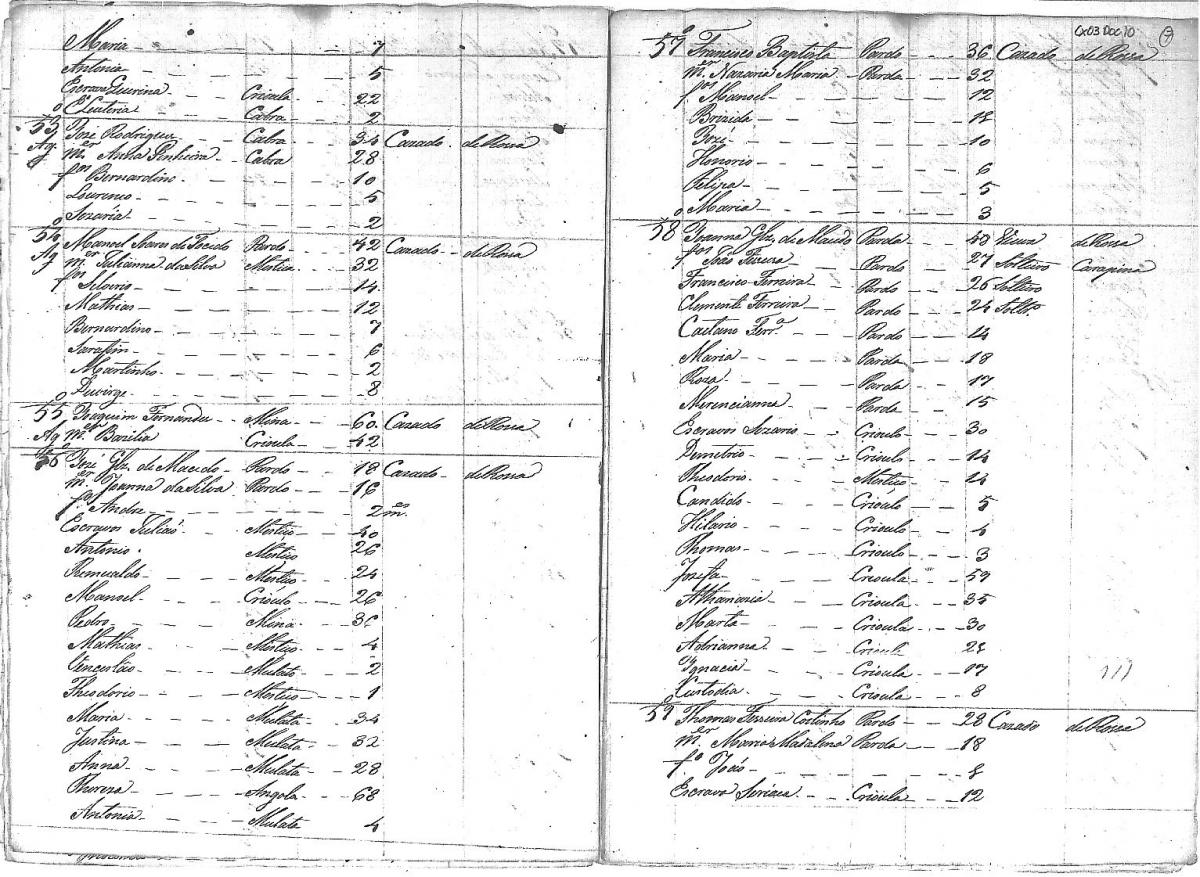 Maria 7
Antonia 5
Escrava Crioula 22
Eluteria Cabra 2
53 Joze Rodrigues Cabra 34 Cazado de Rossa
Ag m.er Anna Pinheira Cabra 28
f.os Bernardino 10
Lourenço 5
Nozaria 2
54 Manoel Soares de Pardo 42 Cazado de Rossa
Ag m.er Julianna da Silva Mestisa 32
f.os Silverio 14
Mathias 12
Bernardino 7
Sarafim 6
Martinho 2
8
55 Joaquim Fernandes Mina 60 Cazado de Rossa
Ag m.er Bazilia Crioula 42
56 Jozé Glz. de Macedo Pardo 18 Cazado de Rossa
m.er Joanna da Silva Parda 16
f.o Andre 2 m.
Escravos Julião Mestiço 40
Antonio Mestiço 26
Remualdo Mestiço 24
Manoel Crioulo 26
Pedro Mina 36
Mathias Mestiço 4
Venceslão Mulato 2
Theodorio Mestiço 1
Maria Mulata 34
Justina Mulata 32
Anna Mulata 28
Thereza Angola 68
Antonia Mulata 4
Cx03 Doc 10
57 Francisco Baptista Pardo 36 Cazado de Rossa
m.er Nazaria Maria Parda 32
f.os Manoel 12
Brizida
Jozé 10
Honorio 6
Felipa 5
Maria 3
58 Joanna Glz. de Macedo Parda Viuva de Rossa
f.os João Ferreira Pardo 27 Solteiro Carapina
Francisco Ferreira Pardo 26 Solteiro
Clemente Ferreira Pardo 24 Soltr.o
Caetano Ferr.a Pardo 14
Maria Parda 18
Roza Parda 17
Merencianna Parda 15
Escravos Crioulo 30
Demetrio Crioulo 14
Theodorio Mestiço 14
Candido Crioulo 5
Hilario Crioulo 4
Thomas Crioulo 3
Jozefa Crioula 59
Athanazia Crioula 35
Marta Crioula 30
Adrianna Crioula
Ignacia Crioula 17
Custodia Crioula 8
59 Thomas Ferreira Coitinho Pardo 28 Cazado de Rossa
m.er Maria Madalena Parda 18
f.o João
Escrava Crioula 12